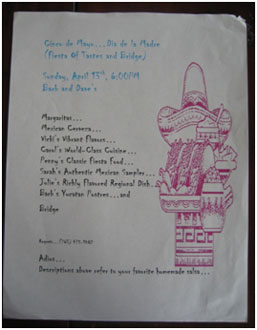 Cinco de Mayo...Dia de la Madre
(Fiesta Of Tastes and Bridge)
Sunday, April 6:00PM
Barb and Dave's
Margaritas...
Mexican Cerveza...
Vicki's Vibrant Flavors...
Carol's World-Class Cuisine...
Penny's Classic Fiesta Food...
Sarah's Authentic Mexican Samples...
Julie's Richly Flavored Regional Dish...
Barb's Yucatan Postres...and
Bridge
Adios...
Descriptions above refer to your favorite homemade salsa...